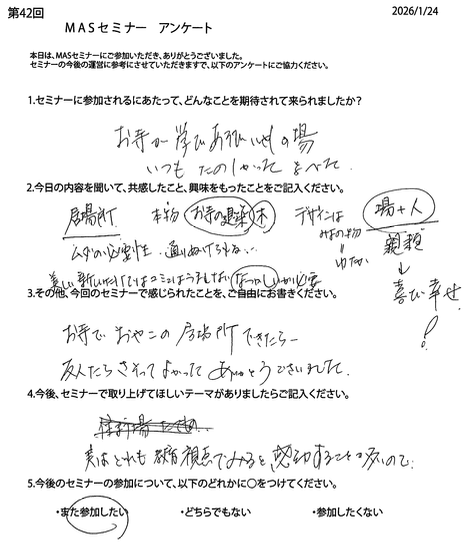 第42回
2026/1/24
MASセミナー アンケート
本日は、MASセミナーにご参加いただき、ありがとうございました。
セミナーの今後の運営に参考にさせていただきますで、以下のアンケートにご協力ください。
1.セミナーに参加されるにあたって、どんなことを期待されて来られましたか?
お寺が 学び あそび いやしの場
いつも たのしかった
2.今日の内容を聞いて、共感したこと、興味をもったことをご記入ください。
居場所 本物 お寺の建築 木 デザインは 場+人
ムダの必要性 通りぬけられる… ゆたか 親類
美しい 新しいだけでは なつかしいが必要
↓
喜び 幸せ!
3.その他、今回のセミナーで感じられたことを、ご自由にお書きください。
お寺で おやこの居場所できたらー
友人たちさそってよかった ありがとうございました。
4.今後、セミナーで取り上げてほしいテーマがありましたらご記入ください。
実はどれも 教育視点でみると 感動することが多いので
5.今後のセミナーの参加について、以下のどれかに○をつけてください。
・また参加したい ・どちらでもない ・参加したくない